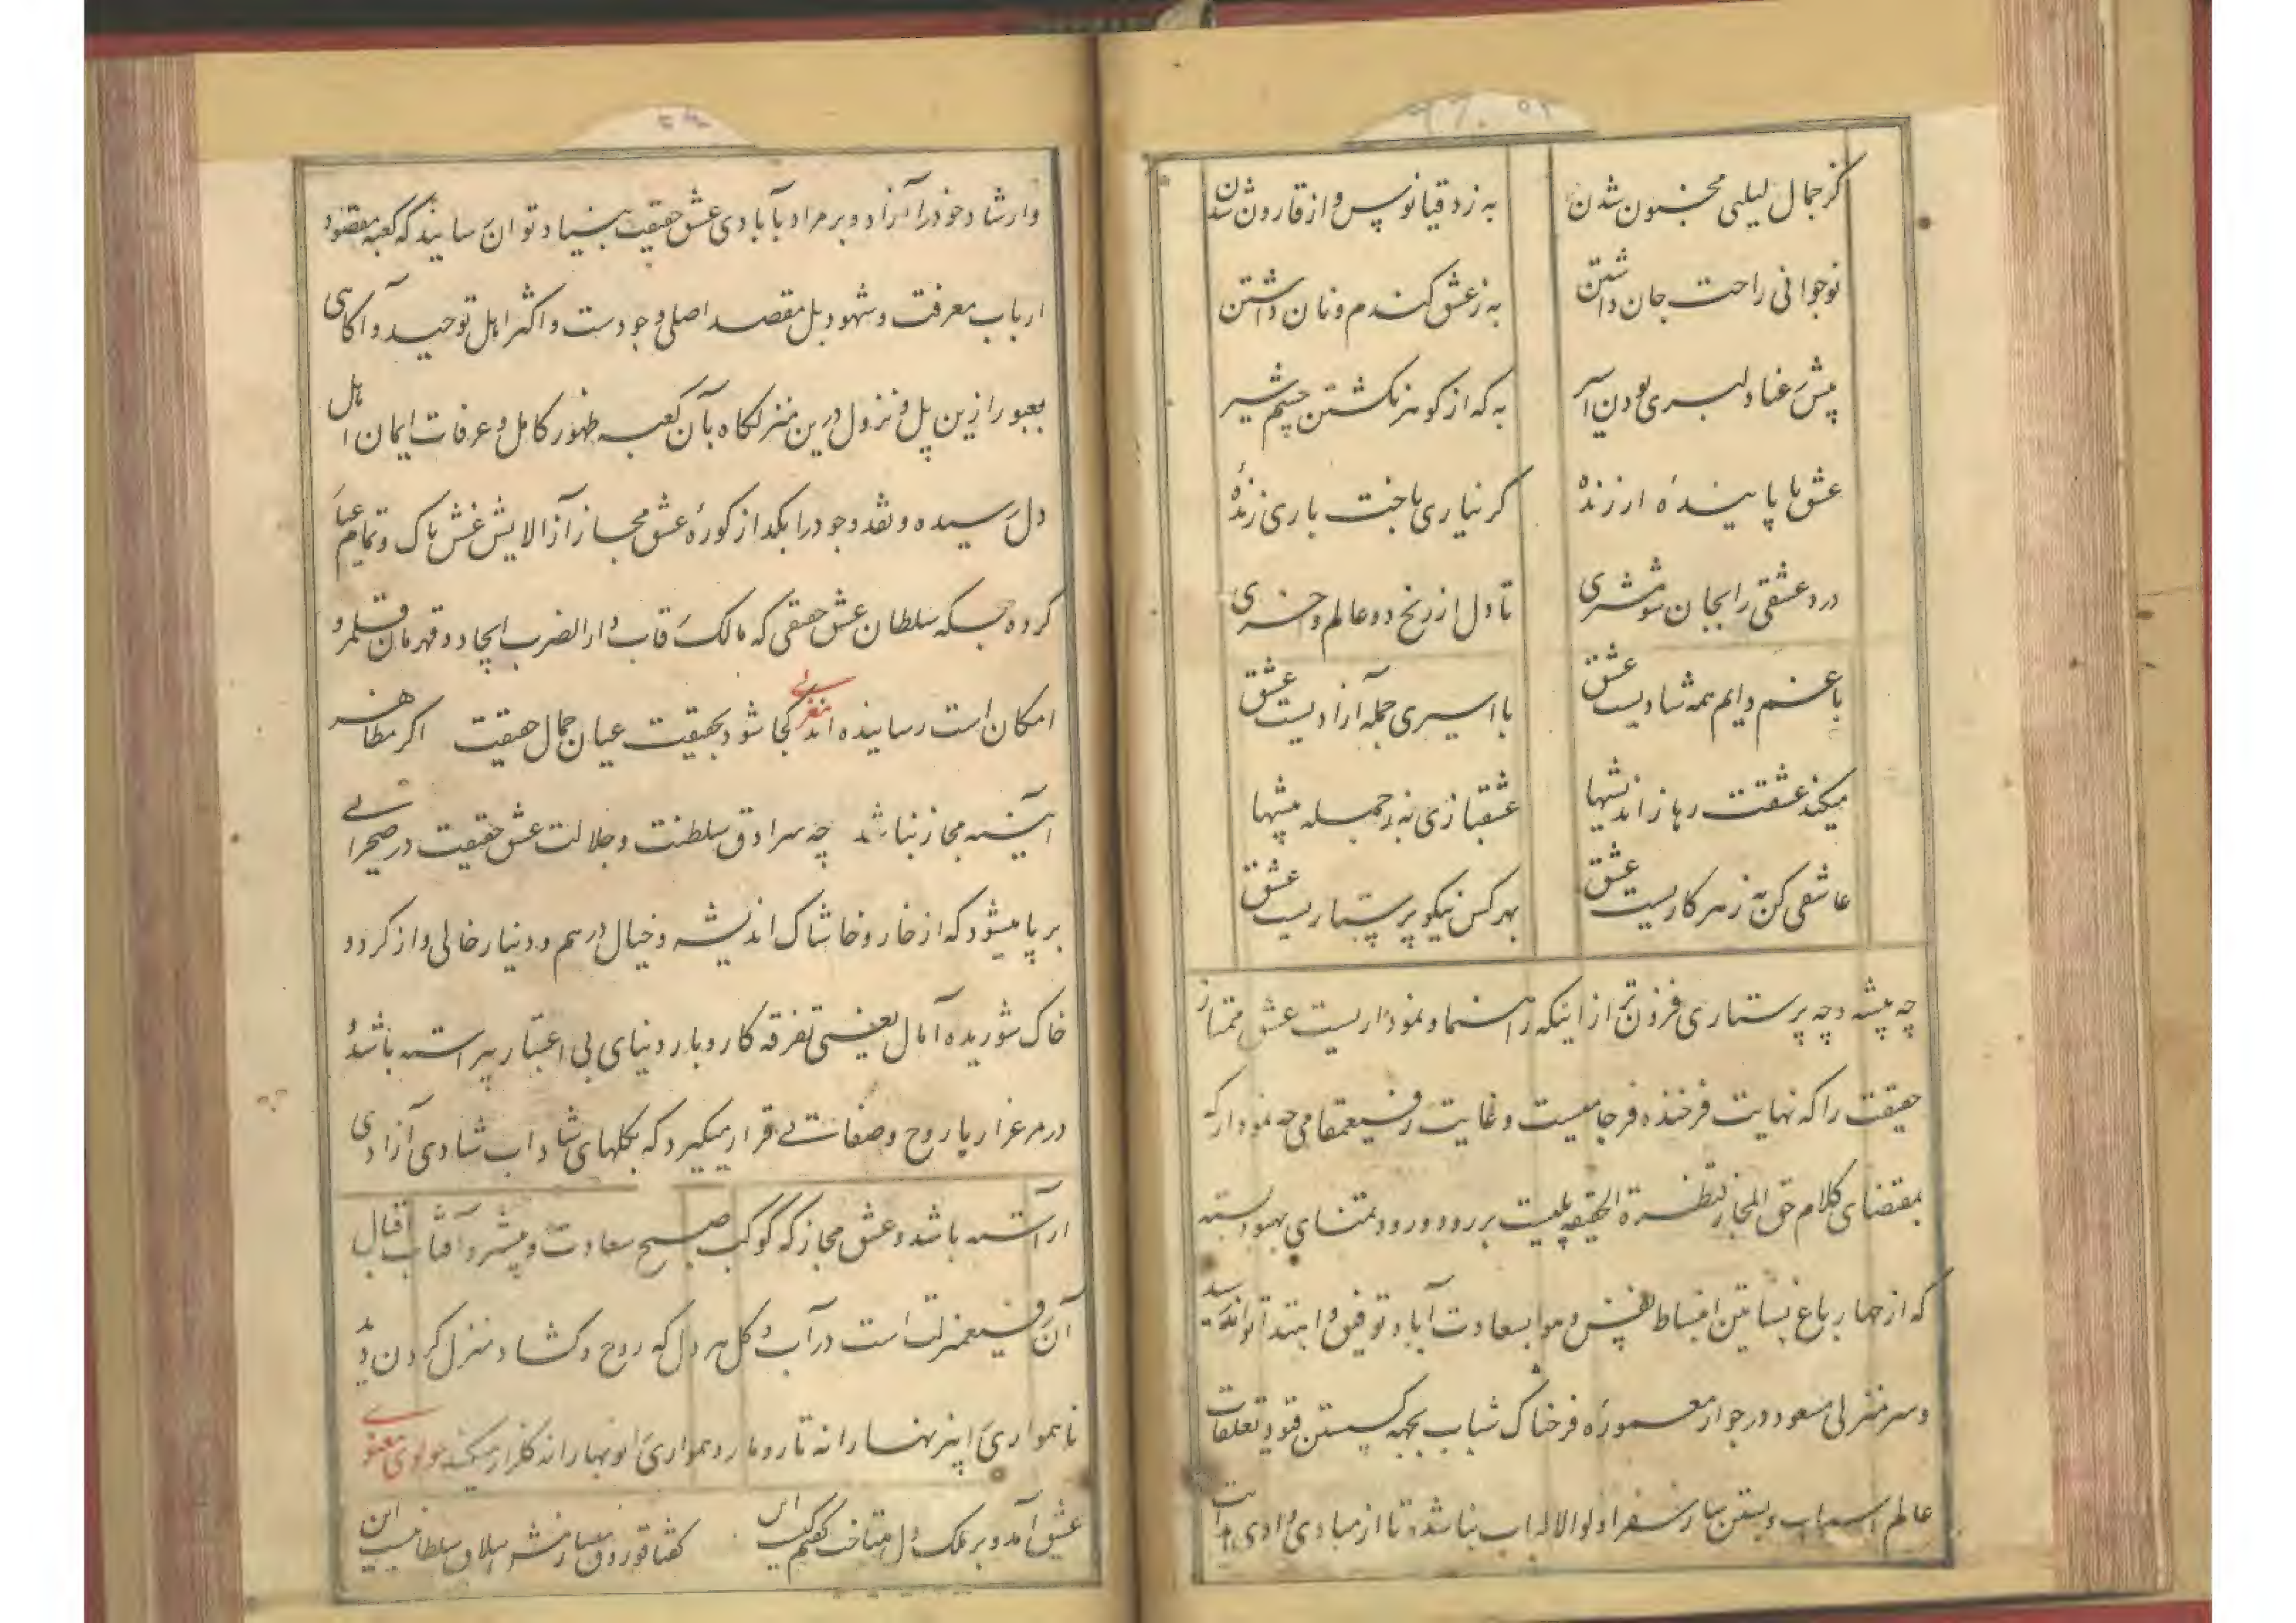 کز جمال لیلی مجنون شدن
به ز دقیانوس و از قارون شدن
نوجوانی راحت جان داشتن
به ز عشق گندم و نان داشتن
پیش عناد لبری بودن
به که از کوهنر گشتن چشم شیر
عشق با پاینده ارزنده
گر نیاری باخت باری زنده
درد عشقی را بجان شو مشتری
تا دل از رنج دو عالم وا خری
با غم دایم همه شادیست عشق
با اسیری جمله آزادیست عشق
میکند عشقت رها ز اندیشها
عشقبازی به ز جمله پیشها
عاشقی کن به ز هر کاریست عشق
بهر کس نیکو پرستاریست عشق
چه پیشه و چه پرستاری فزون‌تر از اینکه راهنما و نموداریست عشق ممتاز
حقیقت را که نهایت فرخنده فرجامیست و غایت رفیعمقامی چه نمودار که
بمقتضای کلام حق المجاز قنطرة الحقیقه پلیست بر رود ورود بمتنای بهبود بسته
که از چهار باغ بساتین انبساط نفس و هوا بسعادت آباد توفیق و اهتدا توانند رسید
و سر منزلی مسعود در جوار معموره فرخناک شباب بجهة گسستن قیود تعلقات
عالم اسباب و بستن بار سفر اولوالالباب بنا شده تا از مبادی وادی هدایت
وارشاد خود را آزاد و بر مراد بآبادی عشق حقیقت بنیاد توان رسانید که کعبه مقصود
ارباب معرفت و شهود بل مقصد اصلی وجودست و اکثر اهل توحید و آگاهی
بعبور ازین پل و نزول درین منزلگاه بآن کعبه ظهور کامل و عرفات ایمان اهل
دل رسیده و نقد وجود را بگداز کوره عشق مجاز از آلایش غش پاک و تمام عیار
کرده بسکه سلطان عشق حقیقی که مالک رقاب دار الضرب ایجاد و قهرمان قلمرو
امکان است رسانیده‌اند مغربی کجا شود بحقیقت عیان جمال حقیقت اگر مظاهر
آیینه مجاز نباشد چه سرادق سلطنت و جلالت عشق حقیقت در صحرائی
بر پا میشود که از خار و خاشاک اندیشه و خیال درهم و دینار خالی و از گرد و
خاک شوریده آمال یعنی تفرقه کاروبار دنیای بی اعتبار پیراسته باشد و
در مرغزار پا روح و صفائی قرار میگیرد که بگلهای شاداب شادی آزادی
آراسته باشد و عشق مجاز که کوکب صبح سعادت و پیشرو آفتاب اقبال
آن رفیعمنزلت است در آب و گل هر دل که روح و گشاد منزل کردن دید
ناهمواری اینر نهسارانه تار و مار و همواری او نهارانه گلزار میکند مولوی معنوی
عشق آمد و بر ملک دل تاخت گفتم کیست این
گفتا قوروق سازش ییلاق سلطانیست این